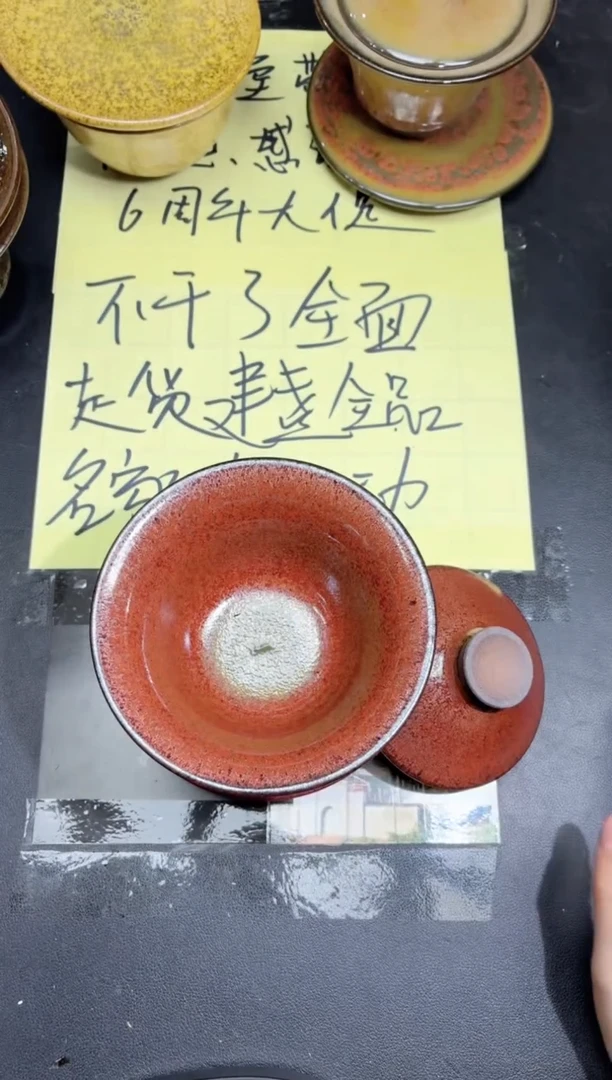 感
6周年大促
不干了全面
走货建盏全品
名家 动